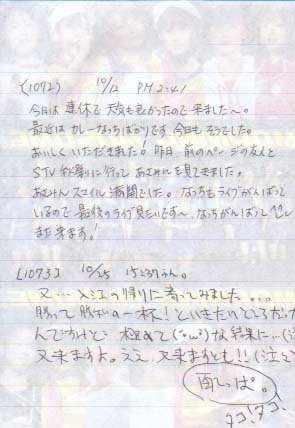 (1072) 10/12 PM2:41
今日は連休で天気も良かったので来ました〜。
最近はカレーなっちばかりです。今日もそうでした。
おいしくいただきました！昨日、前のページの友人と
STV 秋祭りに行って あさみんを見てきました。
あさみんスマイル満開でした。なっちもライブがんばって
いるので最後のライブ見たいです〜。なっちがんばって
また来ます！
[1073] 10/25 15:37
又…入江の帰りに寄ってみました...
勝って 祝いの一杯！といきたいところだった
んですけど… 極めて(´・ω・`)な結果に…
又来ますよ。ええ、又来ますとも!!(泣
タコ！タコ！